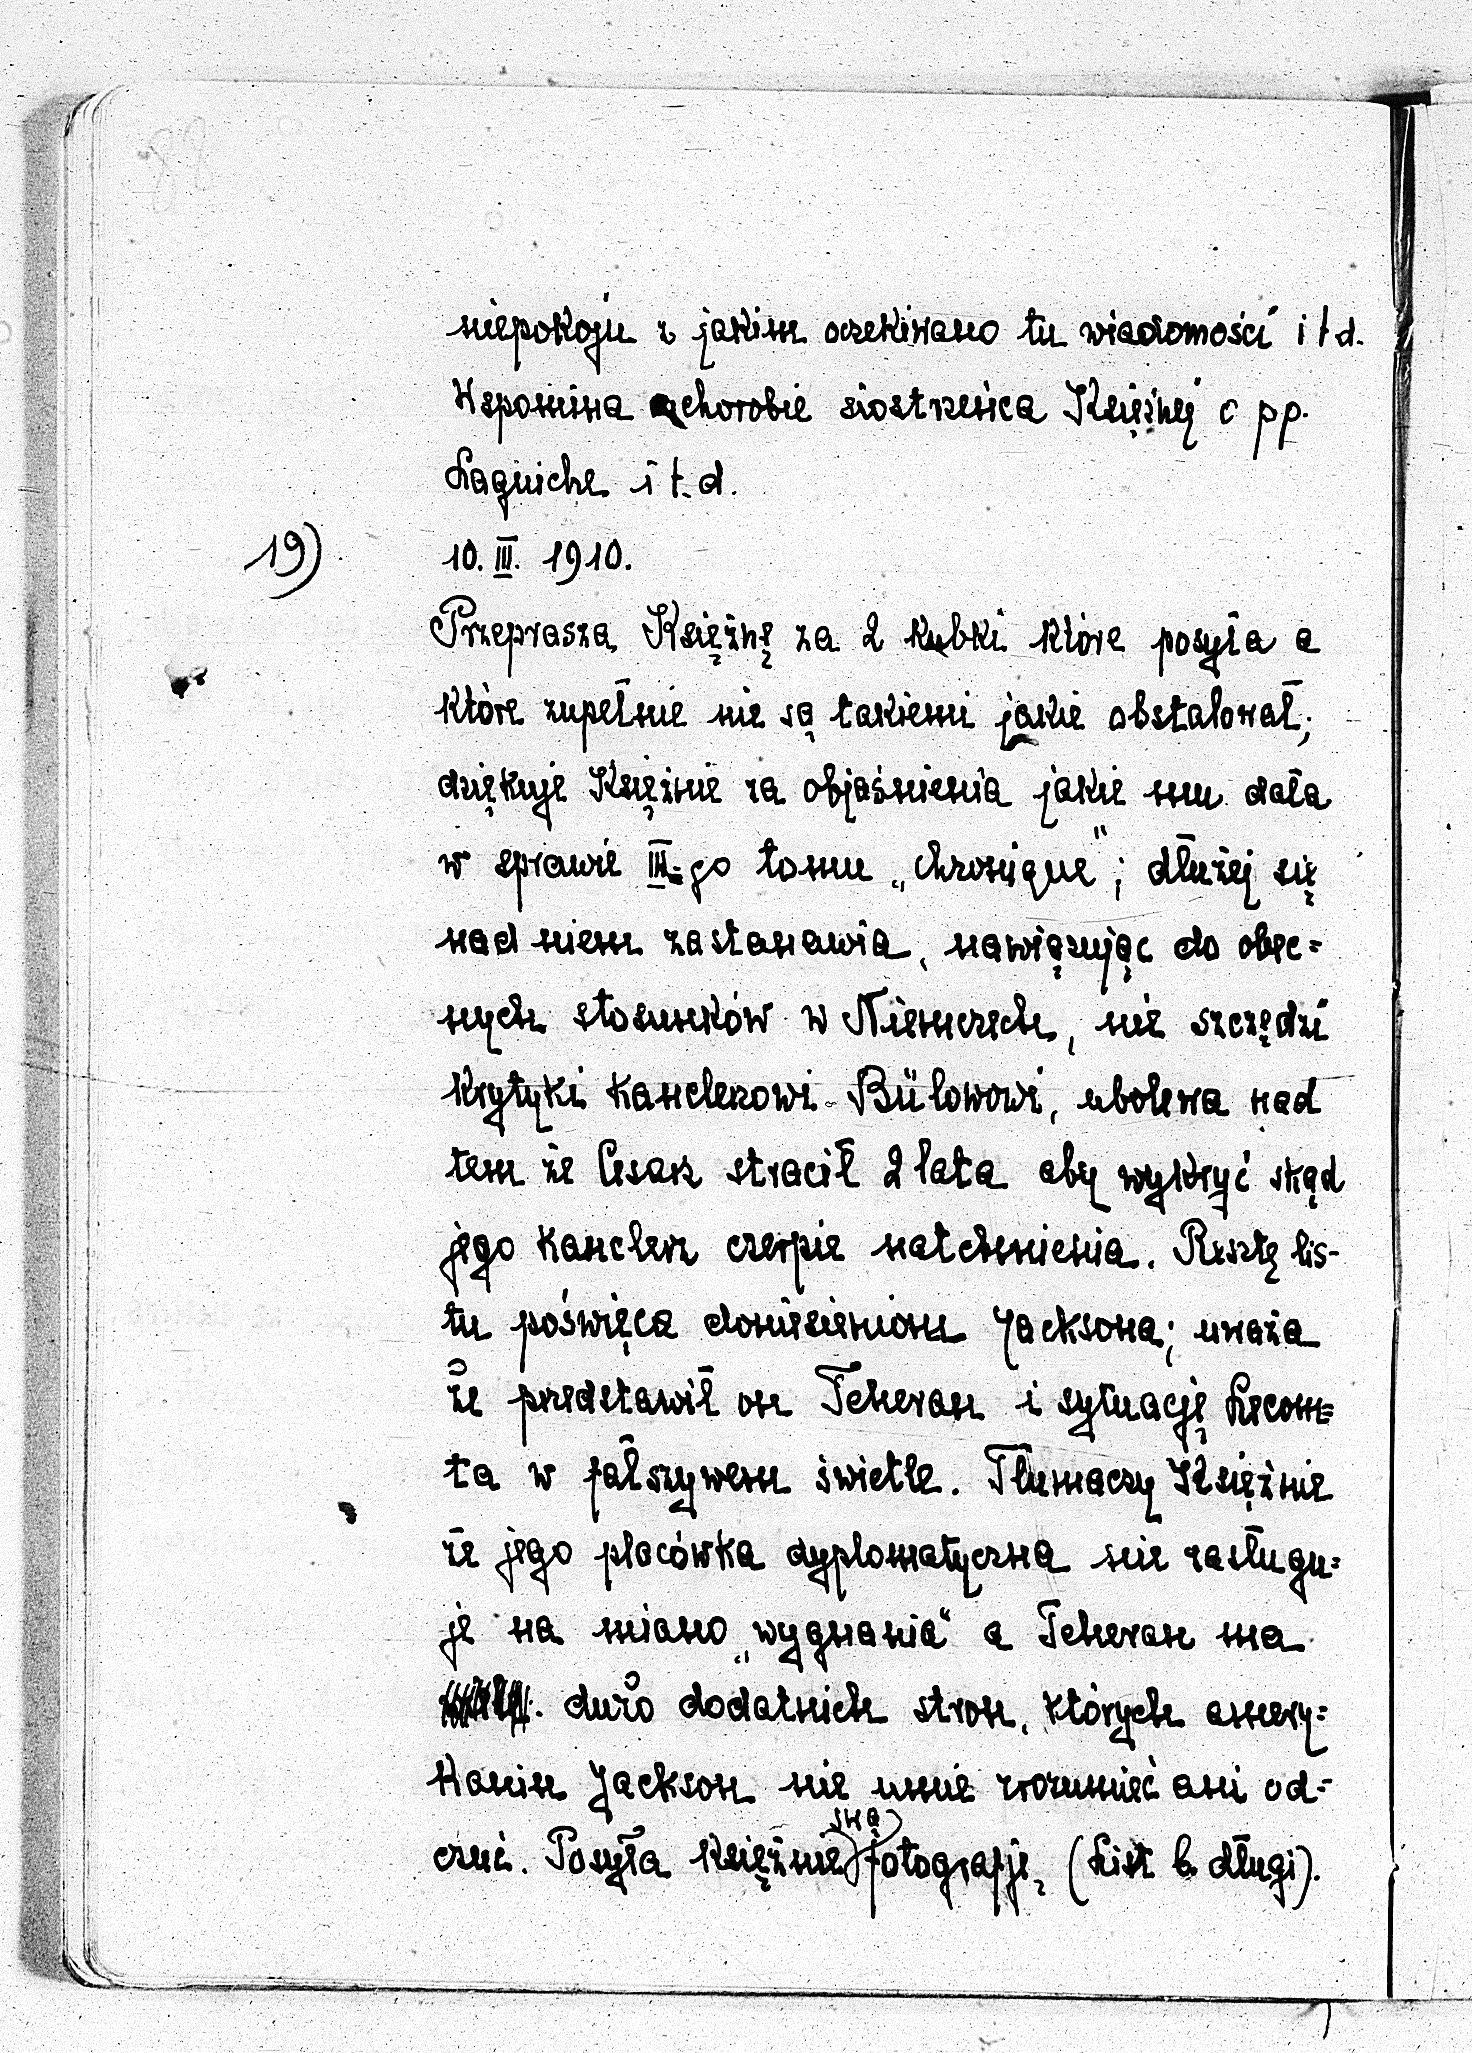 niepokoju z jakim oczekiwano tu wiadomości i t d.
Wspomina o chorobie siostrzeńca Księżnej o pp.
Laguiche i t.d.
19) 10. III. 1910.
Przeprasza Księżnę za 2 kubki które posyła a
które zupełnie nie są takiemi jakie obstalował;
dziękuje Księżnie za objaśnienia jakie mu dała
w sprawie III-go tomu „chronique"; dłużej się
nad niem zastanawia, nawiązując do obec=
nych stosunków w Niemczech, nie szczędzi
krytyki kanclerzowi Bülowowi, ubolewa nad
tem że Cesarz stracił 2 lata aby wykryć skąd
jego kanclerz czerpie natchnienia. Resztę lis-
tu poświęca doniesieniom Jacksona; uważa
że przedstawił on Teheran i sytuację Lecom=
ta w fałszywem świetle. Tłumaczy Księżnie
że jego placówka dyplomatyczna nie zasługu=
je na miano „wygnania" a Teheran ma
dużo dodatnich stron, których amery=
kanin Jackson nie umie zrozumieć ani od=
czuć. Posyła Księżnie swą fotografję, (List b. długi).